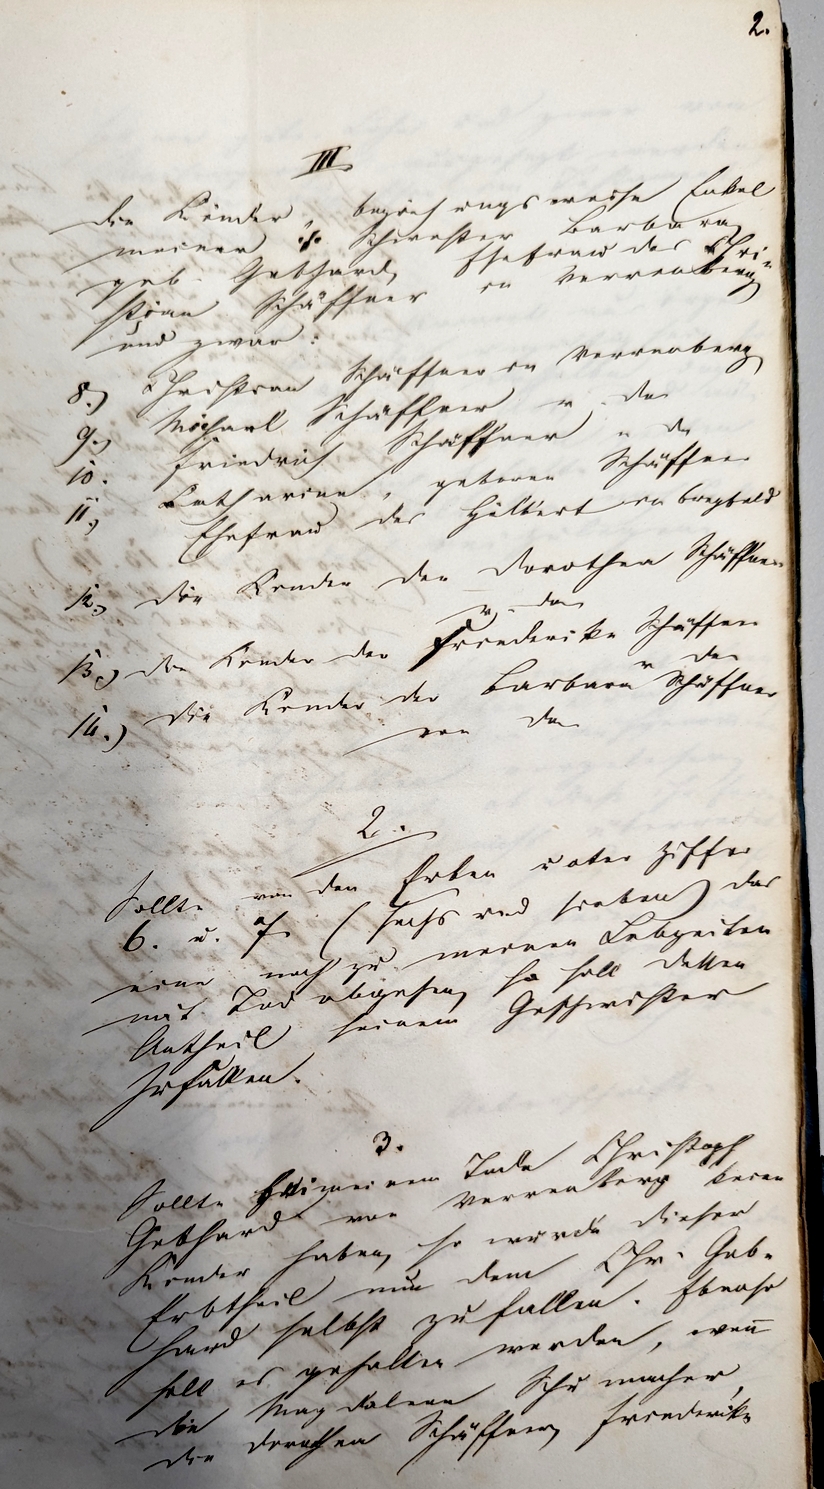 2.
III
die Kinder, beziehungsweise Enkel
meiner † Schwester Barbara,
geb. Gebhard, Ehefrau des Chri-
stian Schäffner in Verrenberg
und zwar:
8.) Christian Schäffner in Verrenberg
9.) Michael Schäffner v. da
10. Friedrich Schäffner v. da
11.) Catharine, geborene Schäffner
Ehefrau des Hilbert in Bregfeld
12.) die Kinder der Dorothea Schäffner
v. da
13.) die Kinder der Friederike Schäffner
v. da
14.) die Kinder der Barbara Schäffner
von da
2.
Sollte von den Erben unter Ziffer
6. u. 7. (sechs und sieben) das
eine noch zu meinen Lebzeiten
mit Tod abgehen, so soll dessen
Antheil seinem Geschwister
zufallen.
3.
Sollte bei meinem Tode Christoph
Gebhard von Verrenberg keine
Kinder haben, so würde dieser
Erbtheil nun dem Chr. Geb-
hard selbst zufallen. Ebenso
soll es gehalten werden, wenn
die Magdalena Schumacher,
die Dorothea Schäffner, Friederike